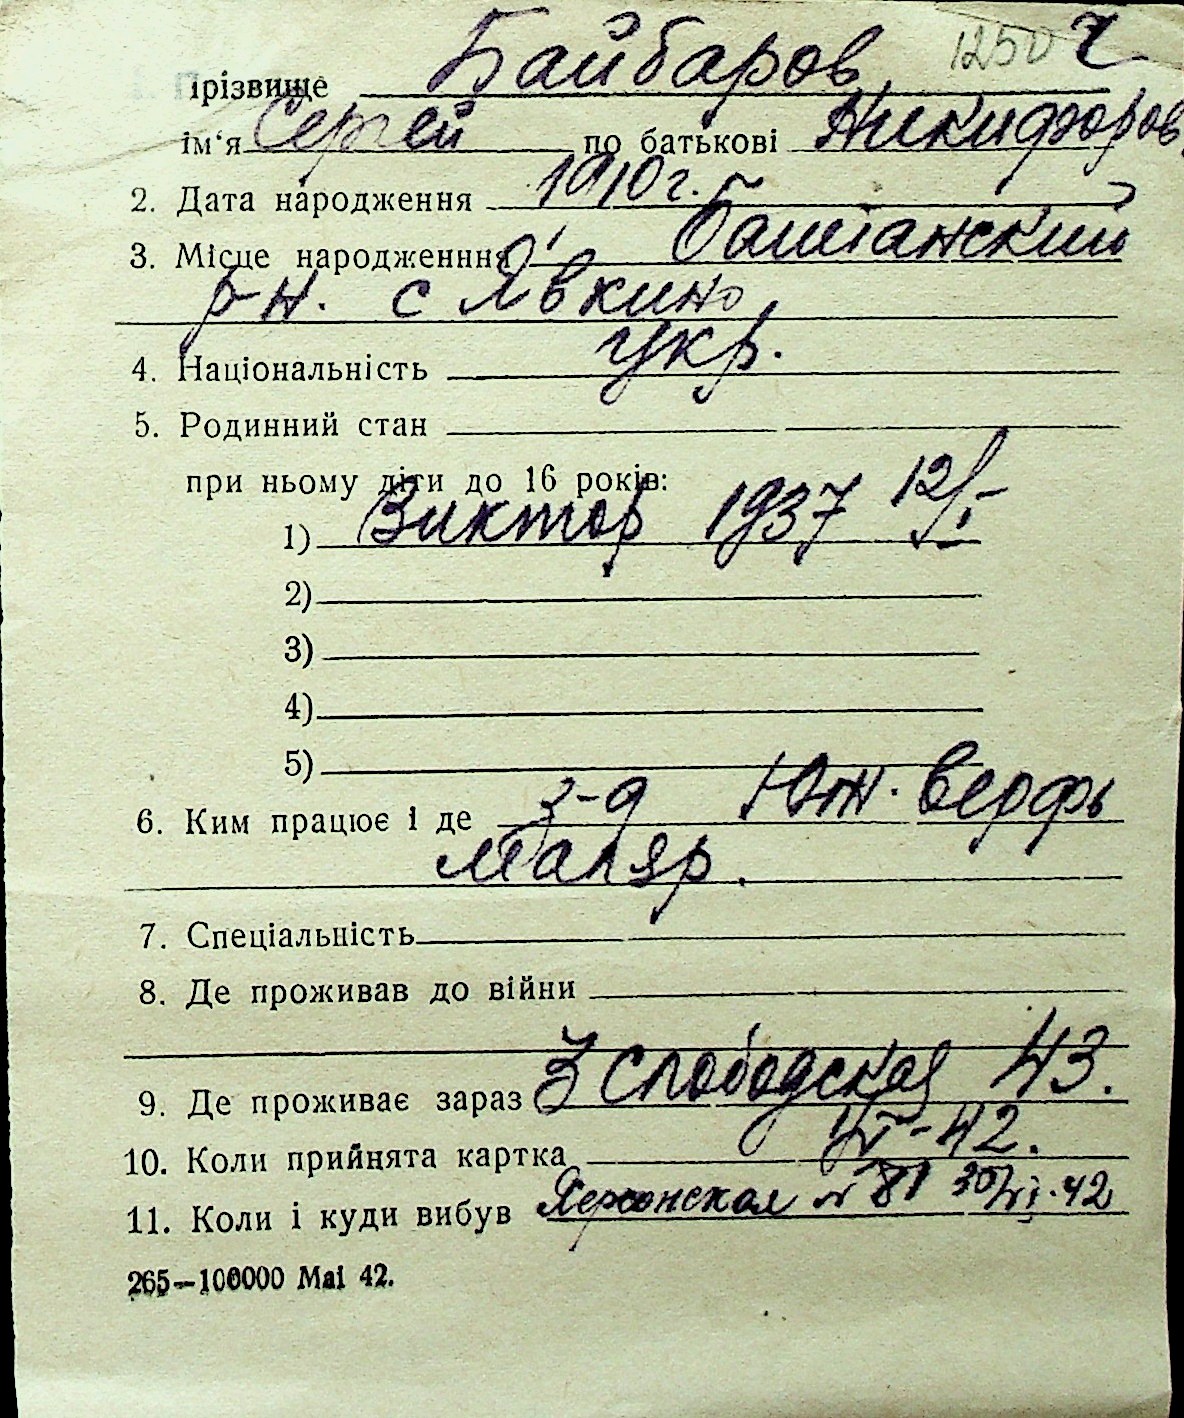 1250 Ч
Прізвище Байбаров
ім‘я Сергей по батькові Никифоров.
2. Дата народження 1910 г.
3. Місце народженння Баштанский
р-н. с Явкино
4. Національність укр.
5. Родинний стан
при ньому діти до 16 років:
1) Виктор 1937 12/I
2)
3)
4)
5)
6. Ким працює і де з-д Юж. верфь
маляр.
7. Спеціальність
8. Де проживав до війни
9. Де проживає зараз 3 Слободская 43.
10. Коли прийнята картка -42.
11. Коли і куди вибув Херсонская № 81 30/VI-42
265—100000 Mai 42.